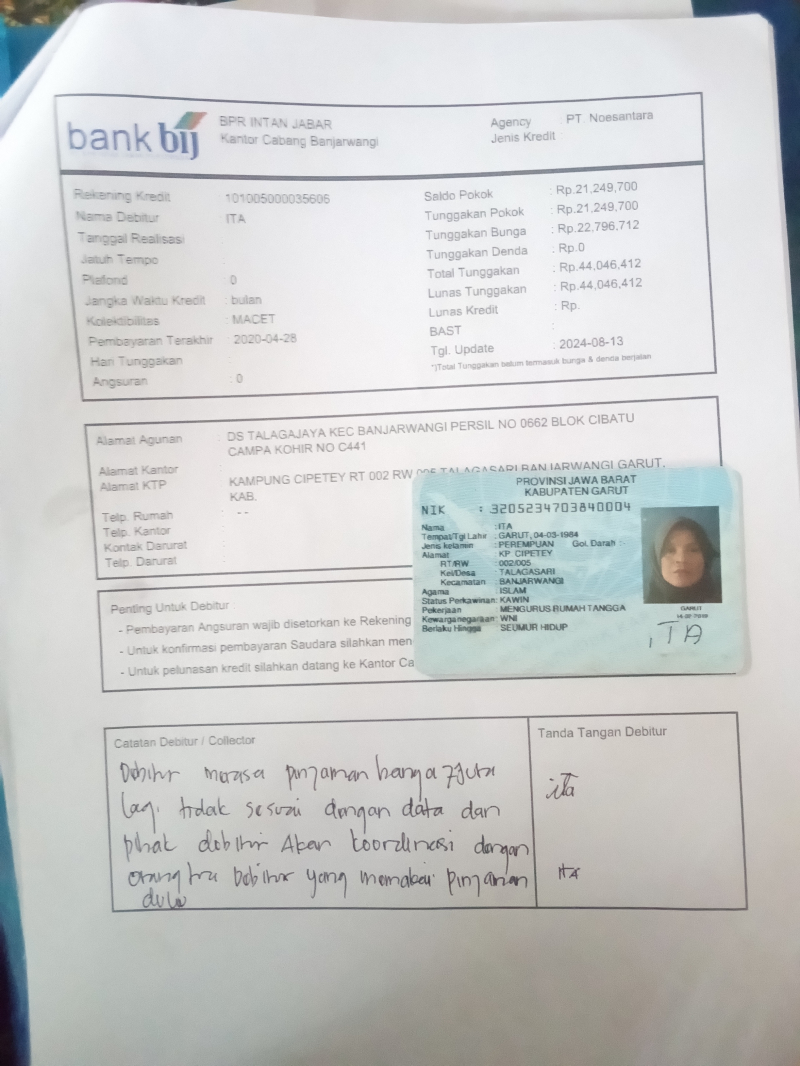 bank bij
BPR INTAN JABAR
Kantor Cabang Banjarwangi
Agency : PT. Noesantara
Jenis Kredit :
Rekening Kredit : 101005000035606
Nama Debitur : ITA
Tanggal Realisasi :
Jatuh Tempo :
Plafond : 0
Jangka Waktu Kredit : bulan
Kolektibilitas : MACET
Pembayaran Terakhir : 2020-04-28
Hari Tunggakan :
Angsuran : 0
Saldo Pokok : Rp.21,249,700
Tunggakan Pokok : Rp.21,249,700
Tunggakan Bunga : Rp.22,796,712
Tunggakan Denda : Rp.0
Total Tunggakan : Rp.44,046,412
Lunas Tunggakan : Rp.44,046,412
Lunas Kredit : Rp.
BAST :
Tgl. Update : 2024-08-13
*)Total Tunggakan belum termasuk bunga & denda berjalan
Alamat Agunan : DS TALAGAJAYA KEC BANJARWANGI PERSIL NO 0662 BLOK CIBATU
CAMPA KOHIR NO C441
Alamat Kantor :
Alamat KTP : KAMPUNG CIPETEY RT 002 RW 005 TALAGASARI BANJARWANGI GARUT,
KAB.
Telp. Rumah : --
Telp. Kantor :
Kontak Darurat :
Telp. Darurat :
PROVINSI JAWA BARAT
KABUPATEN GARUT
NIK : 3205234703840004
Nama : ITA
Tempat/Tgl Lahir : GARUT, 04-03-1984
Jenis kelamin : PEREMPUAN Gol. Darah : -
Alamat : KP. CIPETEY
RT/RW : 002/005
Kel/Desa : TALAGASARI
Kecamatan : BANJARWANGI
Agama : ISLAM
Status Perkawinan: KAWIN
Pekerjaan : MENGURUS RUMAH TANGGA
Kewarganegaraan: WNI
Berlaku Hingga : SEUMUR HIDUP
GARUT
ITA
Penting Untuk Debitur
- Pembayaran Angsuran wajib disetorkan ke Rekening
- Untuk konfirmasi pembayaran Saudara silahkan men
- Untuk pelunasan kredit silahkan datang ke Kantor Ca
Catatan Debitur / Collector
Tanda Tangan Debitur
Debitur merasa pinjaman hanya 7 Juta
lagi tidak sesuai dengan data dan
pihak debitur Akan koordinasi dengan
orang tua Debitur yang memakai pinjaman
dulu
ita
ITA